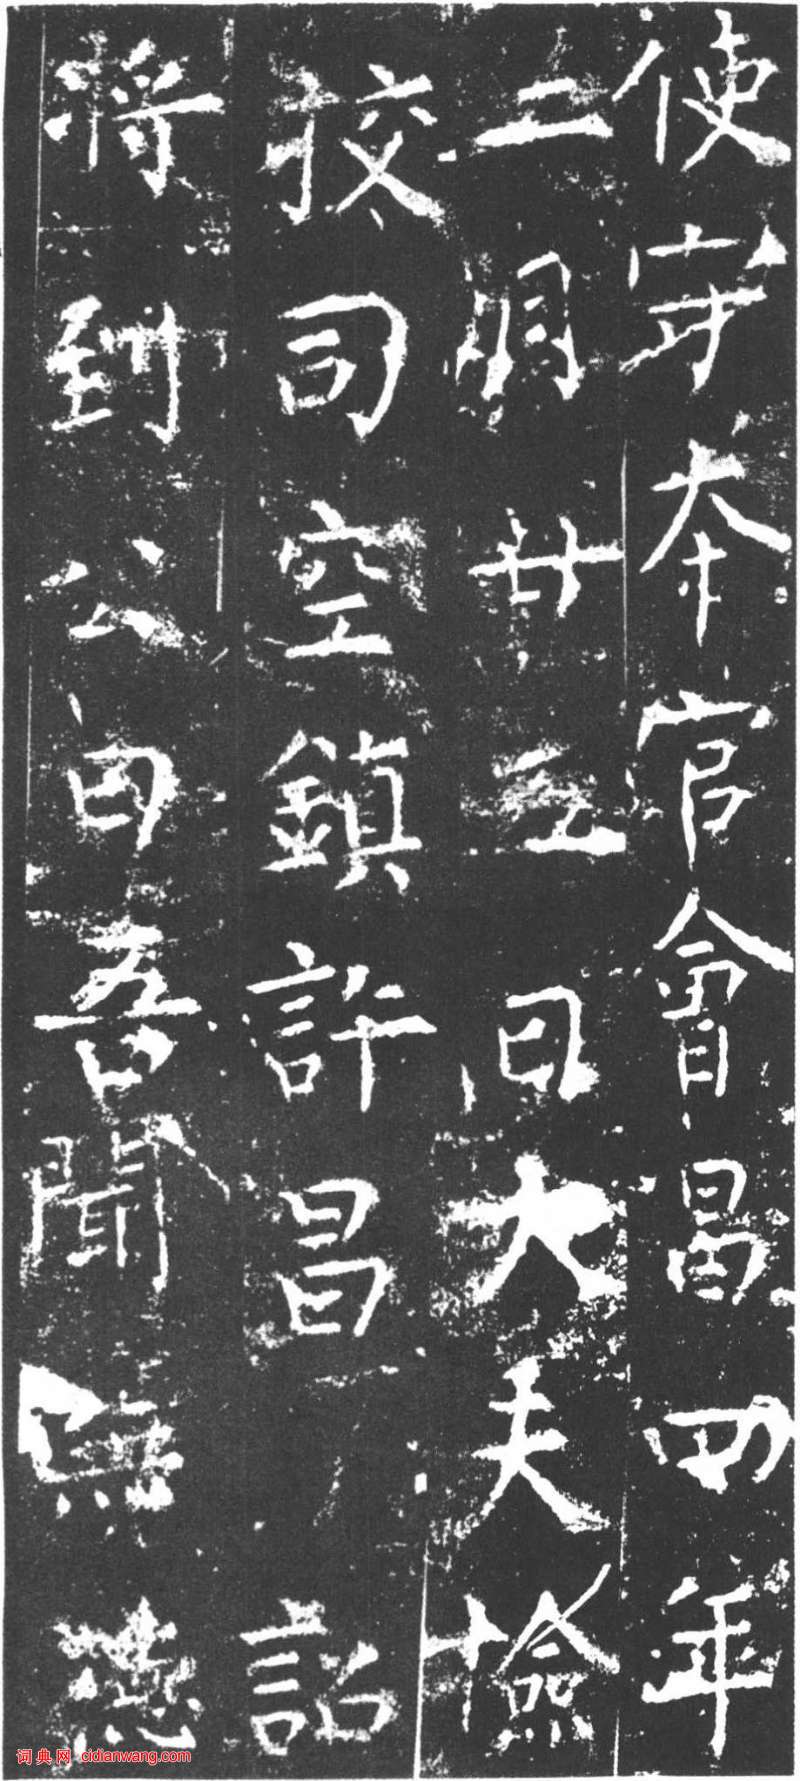 使守本官會昌四年
二月廿三日大夫檢
挍司空鎮許昌詔
將到公曰吾聞無德
词典网 cidianwang.com